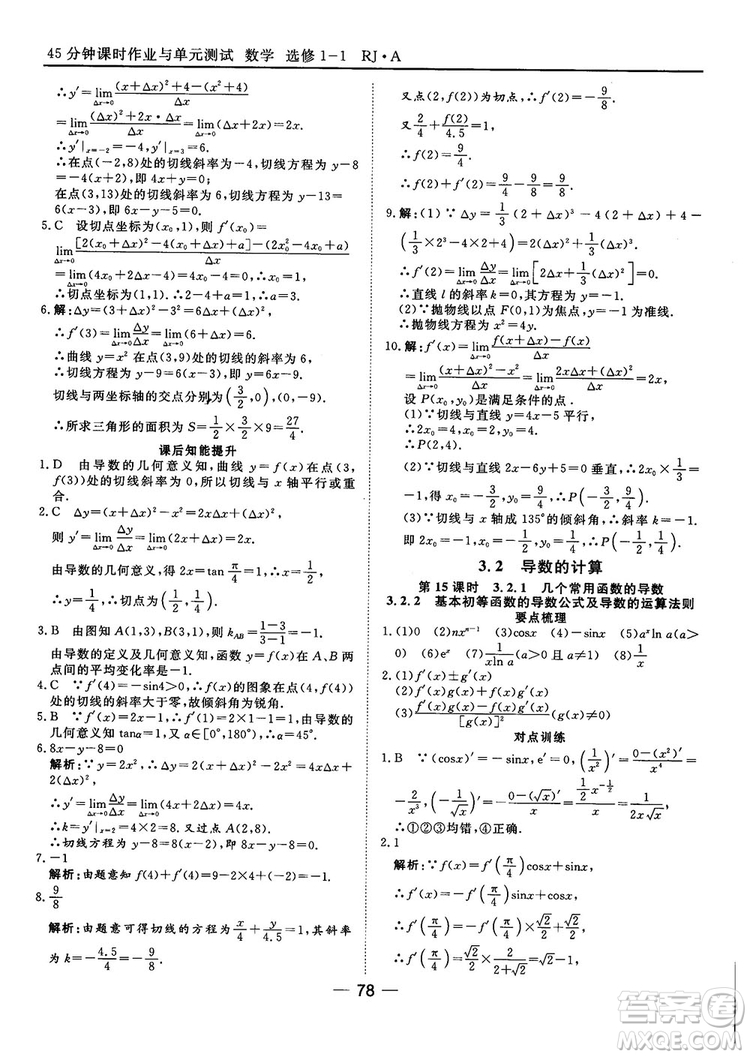 45分钟课时作业与单元测试 数学 选修1-1 RJ·A
∴y′=lim(Δx→0) [(x+Δx)²+2-(x²+2)]/Δx
=lim(Δx→0) [(Δx)²+2x·Δx]/Δx=lim(Δx→0)(Δx+2x)=2x.
∴y′|x=-2=-4,y′|x=3=6.
∴在点(-2,8)处的切线斜率为-4,切线方程为y-8
在点(3,13)处的切线斜率为6,切线方程为y-13=
6(x-3),即6x-y-5=0.
5.C 设切点坐标为(x₀,1),则f′(x₀)=
lim(Δx→0) {[2(x₀+Δx)²-4(x₀+Δx)+a]-(2x₀²-4x₀+a)}/Δx
=lim(Δx→0)(4x₀+2Δx-4)=4x₀-4=0,∴x₀=1.
∴切点坐标为(1,1).∴2-4+a=1,∴a=3.
6.解:∵Δy=(3+Δx)²-3²=6Δx+(Δx)²,
∴f′(3)=lim(Δx→0) Δy/Δx=lim(Δx→0)(6+Δx)=6.
∴曲线y=x²在点(3,9)处的切线的斜率为6.
∴切线的方程为y-9=6(x-3),即y=6x-9.
切线与两坐标轴的交点分别为(3/2,0),(0,-9).
∴所求三角形的面积为S=1/2×3/2×9=27/4.
课后知能提升
1.D 由导数的几何意义知,曲线y=f(x)在点(3,
f(3))处的切线斜率为0,所以切线与x轴平行或重
合.
2.C Δy=(x₀+Δx)²-x₀²=2x₀Δx+(Δx)²,
则y′=lim(Δx→0) Δy/Δx=lim(Δx→0)(2x₀+Δx)=2x₀.
由导数的几何意义,得2x₀=tan π/4=1.
∴x₀=1/2,∴切点为(1/2,1/4).
3.B 由图知A(1,3),B(3,1),则k_AB=(1-3)/(3-1)=-1.
由导数的定义及几何意义知,函数y=f(x)在A、B两
点间的平均变化率是-1.
4.C ∵f′(4)=-sin4>0,∴f(x)的图象在点(4,f(4))
处的切线的斜率大于零,故倾斜角为锐角.
5.B ∵f′(x)=2x-1,∴f′(1)=2×1-1=1,由导数的
几何意义知tanα=1,又α∈[0°,180°),∴α=45°.
6.8x-y-8=0
解析:∵Δy=2(x+Δx)²-2x²=4xΔx+2(Δx)²,
∴y′=lim(Δx→0) Δy/Δx=lim(Δx→0)(4x+2Δx)=4x.
∴k=y′|x=2=4×2=8.又过点A(2,8).
∴切线方程为y-8=8(x-2),即8x-y-8=0.
7.-1
解析:由题意知f(4)+f′(4)=1-2=-1.
8.9/8
解析:由题意可得切线的方程为x/4+y/4.5=1,其斜率
为k=-4.5/4=-9/8.
又点(2,f(2))为切点,∴f′(2)=-9/8.
又2/4+f(2)/4.5=1,
∴f(2)=9/4.
∴f(2)+f′(2)=9/8.
9.解:(1)∵Δy=1/3(2+Δx)³-4(2+Δx)+4-
(1/3×2³-4×2+4)=2(Δx)²+1/3(Δx)³.
∴f′(2)=lim(Δx→0) Δy/Δx=lim(Δx→0)[2Δx+1/3(Δx)²]=0.
∴直线l的斜率k=0,∴直线l的方程为y=-4/3.
(2)∵抛物线以点F(0,1)为焦点,以y=-1为准线.
∴抛物线方程为x²=4y.
10.解:f′(x)=lim(Δx→0) [f(x+Δx)-f(x)]/Δx
=lim(Δx→0) [(x+Δx)²-x²]/Δx=lim(Δx→0) [2xΔx+(Δx)²]/Δx=2x,
设P(x₀,y₀)是满足条件的点.
(1)∵切线与直线y=4x-5平行,
∴2x₀=4,x₀=2,y₀=4,
∴P(2,4).
(2)∵切线与直线2x-6y+5=0垂直,∴2x₀×1/3=
-1,得x₀=-3/2,y₀=9/4,∴P(-3/2,9/4).
(3)∵切线与x轴成135°的倾斜角,∴斜率为-1,
即2x₀=-1,得x₀=-1/2,y₀=1/4,∴P(-1/2,1/4).
3.2 导数的计算
第15课时 3.2.1 几个常用函数的导数
3.2.2 基本初等函数的导数公式及导数的运算法则
要点梳理
1.(1)0 (2)nxⁿ⁻¹ (3)cosx (4)-sinx (5)aˣlna
(a>0) (6)eˣ (7)1/(xlna)(a>0且a≠1) (8)1/x
2.(1)f′(x)±g′(x)
(2)f′(x)g(x)+f(x)g′(x)
(3)[f′(x)g(x)-f(x)g′(x)]/[g(x)]²(g(x)≠0)
对点训练
1.B ∵(cosx)′=-sinx,(1/x²)′=[0-(x²)′]/x⁴=
-2/x³,(-1/√x)′=-[0-(√x)′]/(√x)²=(1/2 x^(-1/2))/x=1/(2x√x)
∴①②③均错,④正确.
2.1
解析:∵f(x)=f′(π/4)cosx+sinx,
∴f′(x)=-f′(π/4)sinx+cosx,
∴f′(π/4)=-f′(π/4)×√2/2+√2/2,
∴f′(π/4)=1/(√2+1)=√2-1.
78
答案圈